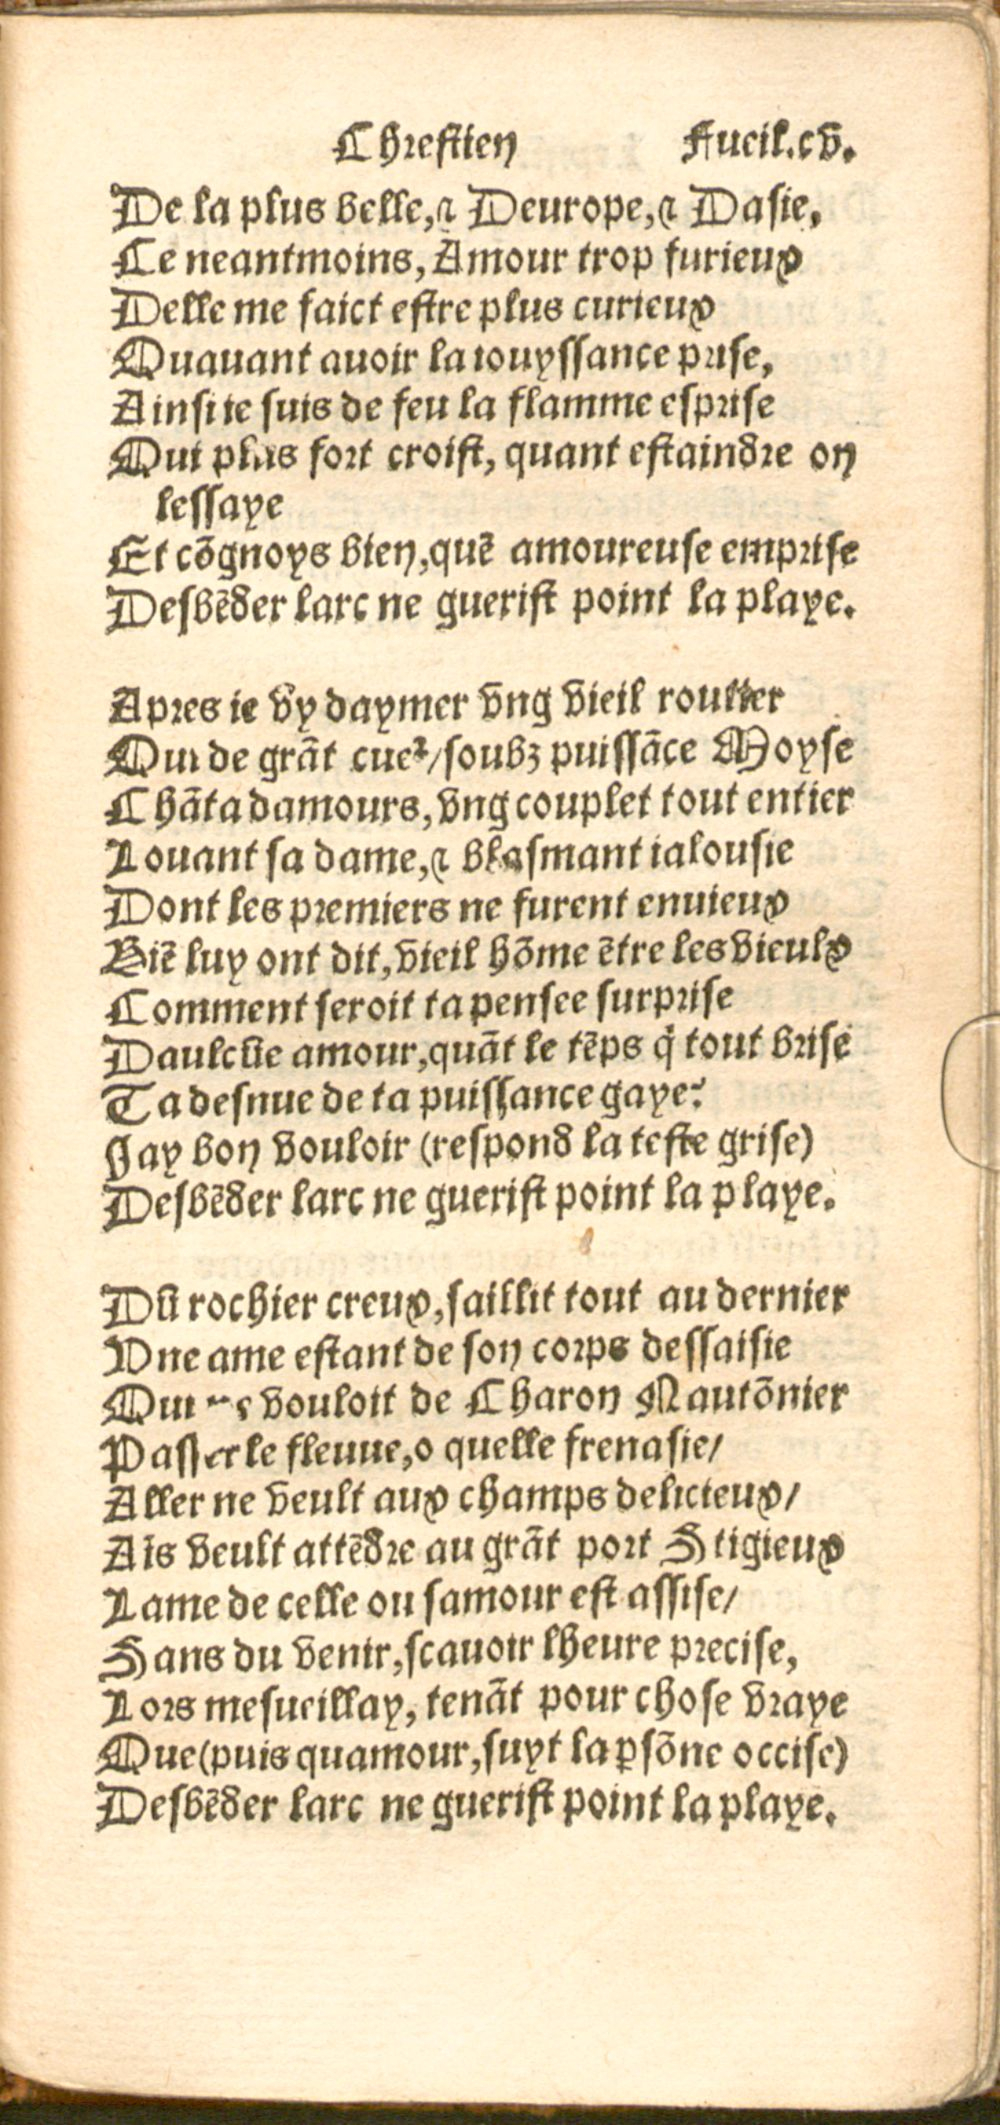 Chrestien Fueil.cv.
De la plus belle,⁊ Deurope,⁊ Dasie,
Ce neantmoins, Amour trop furieux
Delle me faict estre plus curieux
Quauant auoir la iouyssance prise,
Ainsi ie suis de feu la flamme esprise
Qui plus fort croist, quant estaindre on
lessaye
Et cõgnoys bien,quẽ amoureuse emprise
Desbẽder larc ne guerist point la playe.
Apres ie vy daymer vng vieil routier
Qui de grãt cueꝛ/soubz puissãce Moyse
Chãta damours, vng couplet tout entier
Louant sa dame,⁊ blasmant ialousie
Dont les premiers ne furent enuieux
Biẽ luy ont dit, vieil hõme ẽtre les vieulx
Comment seroit ta pensee surprise
Daulcũe amour,quãt le tẽps q̃ tout brise
Ta desnue de ta puissance gaye?
Jay bon vouloir (respond la teste grise)
Desbẽder larc ne guerist point la playe.
Dũ rochier creux, saillit tout au dernier
Vne ame estant de son corps dessaisie
Qui ne vouloit de Charon Nautõnier
Passer le fleuue,o quelle frenasie/
Aller ne veult aux champs delicieux/
Aĩs veult attẽdre au grãt port Stigieux
Lame de celle ou samour est assise/
Sans du venir, scauoir lheure precise,
Lors mesueillay, tenãt pour chose vraye
Que(puis quamour,suyt la ꝑsõne occise)
Desbẽder larc ne guerist point la playe.